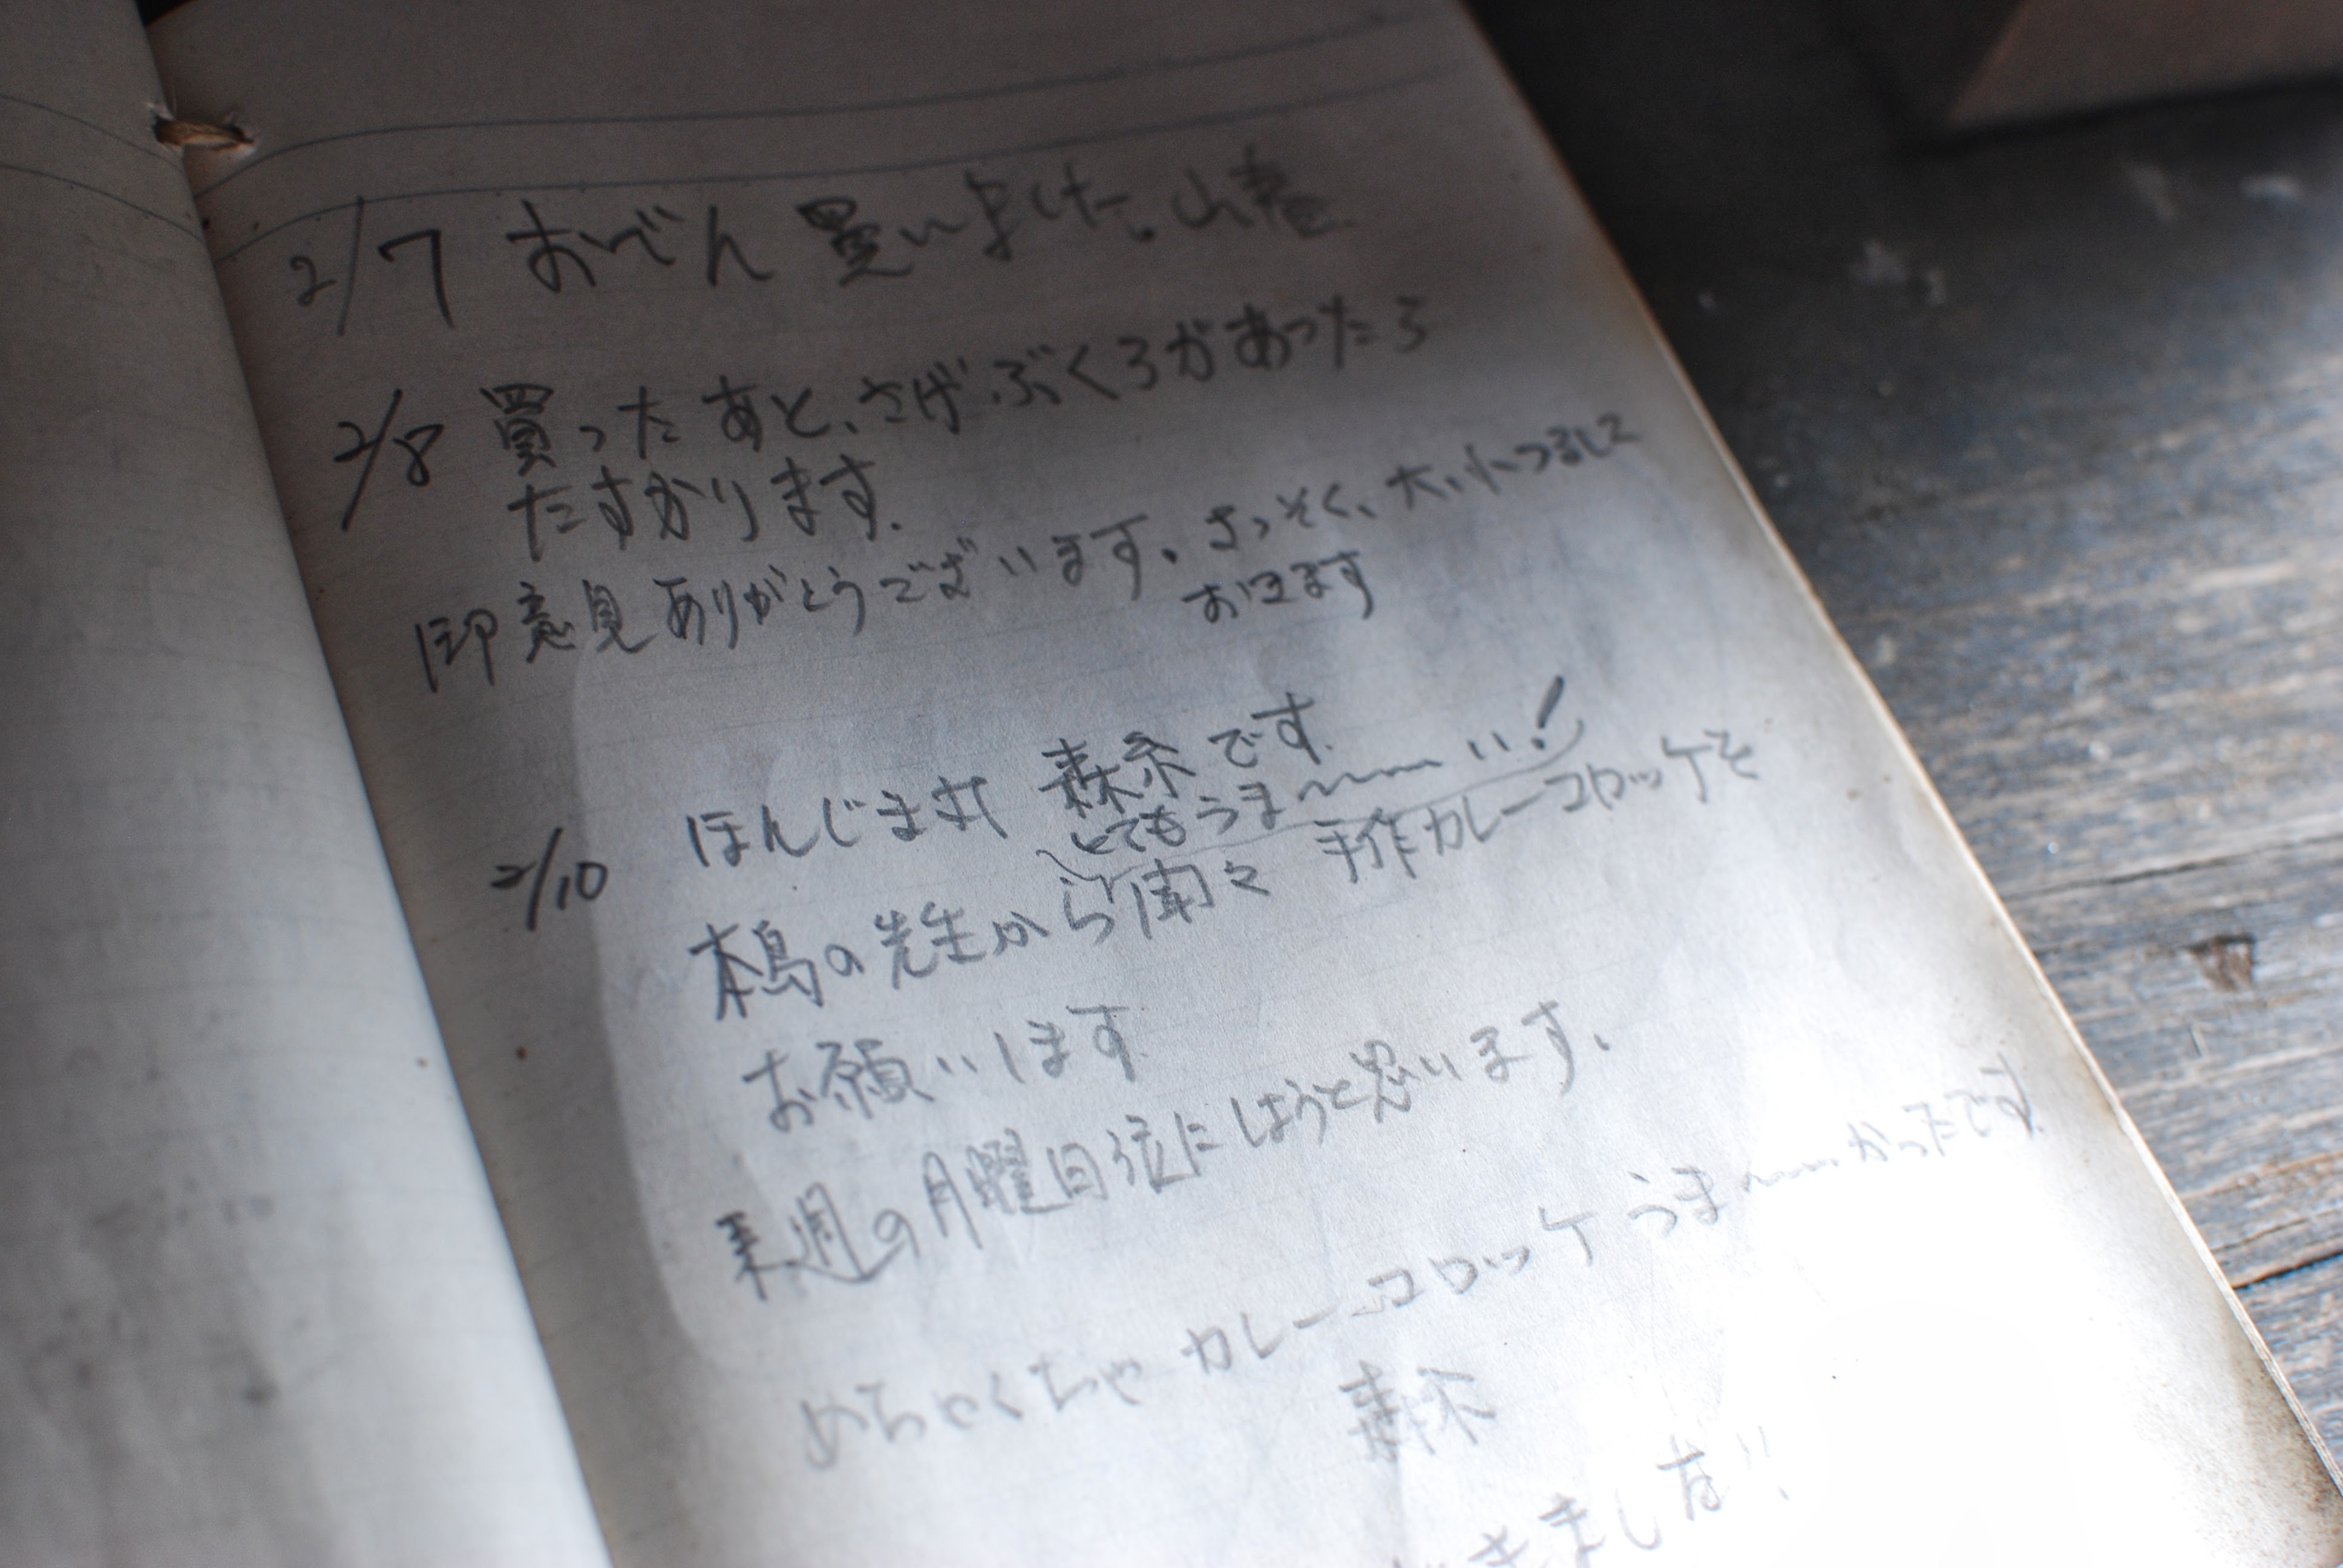 2/7 おべん 買いました。山
2/8 買ったあと、さげぶくろがあったら
たすかります。
御意見ありがとうございます。さっそく、大、小つるして
おきます
2/10 ほんじま 森です。
とてもうま〜〜い!
本島の先生から聞く 手作カレーコロッケを
お願いします
来週の月曜日位にしようと思います。
めちゃくちゃ カレーコロッケ うま〜〜かったです
森
きました!!